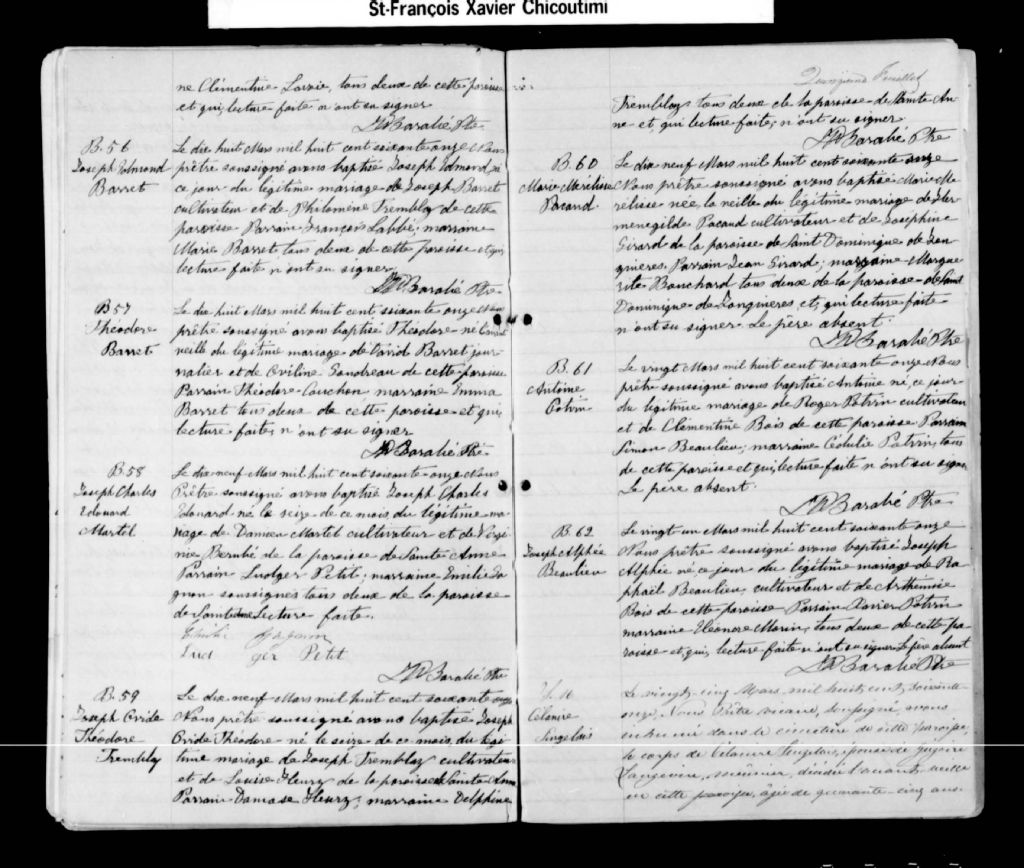 St-François Xavier Chicoutimi
ne Clémentine Lavoie, tous deux de cette paroisse
et qui, lecture faite n'ont su signer
Ptre
B. 56
Joseph Edmond
Barret
Le dix huit Mars mil huit cent soixante onze Nous
prêtre soussigné avons baptisé Joseph Edmond né
ce jour du légitime mariage de Joseph Barret
cultivateur et de Philomène Tremblay de cette
paroisse Parrain François Labbé, marraine
Marie Barret tous deux de cette paroisse et qui,
lecture faite n'ont su signer
Ptre
B 57
Théodore
Barret
Le dix huit Mars mil huit cent soixante onze Nous
prêtre soussigné avons baptisé Théodore né
veille du légitime mariage de David Barret jour
nalier et de Eveline Gaudreau de cette paroisse
Parrain Théodore Cauchon marraine Emma
Barret tous deux de cette paroisse et qui,
lecture faite, n'ont su signer
Ptre
B. 58
Joseph Charles
Edouard
Martel
Le dix neuf Mars mil huit cent soixante onze Nous
Prêtre soussigné avons baptisé Joseph Charles
Edouard né le seize de ce mois, du légitime ma
riage de Damien Martel cultivateur et de Virgi
nie Berubé de la paroisse de Sainte Anne
Parrain Ludger Petit, marraine Emilie Ga
gnon soussignés tous deux de la paroisse
de Sainte Anne Lecture faite.
Gagnon
Lud ger Petit
Ptre
B. 59
Joseph Ovide
Théodore
Tremblay
Le dix neuf Mars mil huit cent soixante onze
Nous prêtre soussigné avons baptisé Joseph
Ovide Théodore né le seize de ce mois, du légi
time mariage de Joseph Tremblay cultivateur
et de Louise Fleury de la paroisse Sainte Anne
Parrain Damase Fleury, marraine Delphine
Feuillet
Tremblay tous deux de la paroisse de Sainte An
ne et, qui lecture faite, n'ont su signer
Ptre
B. 60
Marie Mérélisse
Pacaud
Le dix neuf Mars mil huit cent soixante onze
Nous prêtre soussigné avons baptisé Marie Mé
rélisse née la veille du légitime mariage de Her
menegilde Pacaud cultivateur et de Josephine
Girard de la paroisse de Saint Dominique de Jon
quieres, Parrain Jean Girard; marraine Margue
rite Bouchard tous deux de la paroisse de Saint
Dominique de Jonquieres et, qui lecture faite
n'ont su signer. Le père absent.
Ptre
B. 61
Antoine
Potvin
Le vingt Mars mil huit cent soixante onze Nous
prêtre soussigné avons baptisé Antoine né ce jour
du légitime mariage de Roger Potvin cultivateur
et de Clementine Bois de cette paroisse Parrain
Simon Beaulieu, marraine Cédulie Potvin, tous
de cette paroisse et qui, lecture faite n'ont su signer
Le père absent.
Ptre
B. 62
Joseph Alphée
Beaulieu
Le vingt un Mars mil huit cent soixante onze
Nous prêtre soussigné avons baptisé Joseph
Alphée né ce jour du légitime mariage de Ra
phaël Beaulieu, cultivateur et de Arthémise
Bois de cette paroisse Parrain Xavier Potvin
marraine Eléonore Morin, tous deux de cette pa
roisse et, qui, lecture faite n'ont su signer Le père absent
Ptre
Singelais
Le vingt-cinq Mars, mil huit cent soixante
onze, Nous Prêtre vicaire, soussigné avons
inhumé dans le cimetière de cette paroisse,
le corps de Singelais, épouse de
Langevin, meunier, décédé l'avant veille
en cette paroisse, âgée de quarante-cinq ans.